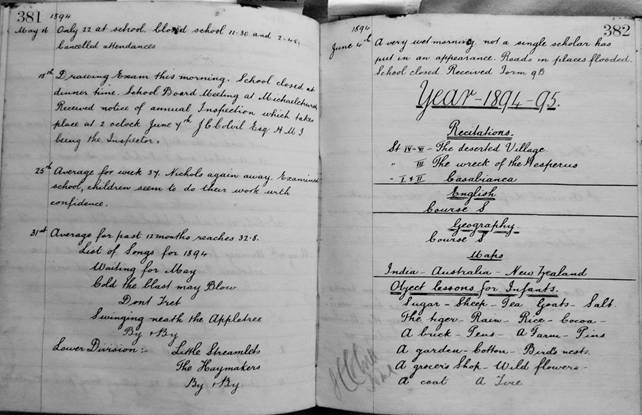 381 1894
May 16 Only 22 at school. Closed school 11-30 and 2-45,
Cancelled attendances
18th Drawing Exam this morning. School closed at
dinner time. School Board Meeting at Michaelchurch
Received notice of annual Inspection which takes
place at 2 oclock June 7th J C Colvil Esq H.M.I
being the Inspector.
25th Average for week 37. Nichols again away. Examined
school, children seem to do their work with
confidence.
31st Average for past 12 months reaches 32.8.
List of Songs for 1894
Waiting for May
Cold the blast may Blow
Dont Fret
Swinging neath the Appletree
By & By
Lower Division:- Little Streamlets
The Haymakers
By & By
1894 382
June 4th A very wet morning, not a single scholar has
put in an appearance. Roads in places flooded.
School closed. Received Form 9B
Year-1894-95.
Recitations.
St IV-VI - The deserted Village
" III The wreck of the Hesperus
- I & II Casabianca
English
Course S
Geography
Course S
Maps
India - Australia - New Zealand
Object lessons for Infants.
Sugar - Sheep - Tea - Goats - Salt
The tiger - Rain - Rice - Cocoa
A brick - Pens - A Farm - Pins
A garden - Cotton - Birds nests
A grocers Shop - Wild flowers -
A coat A Fire